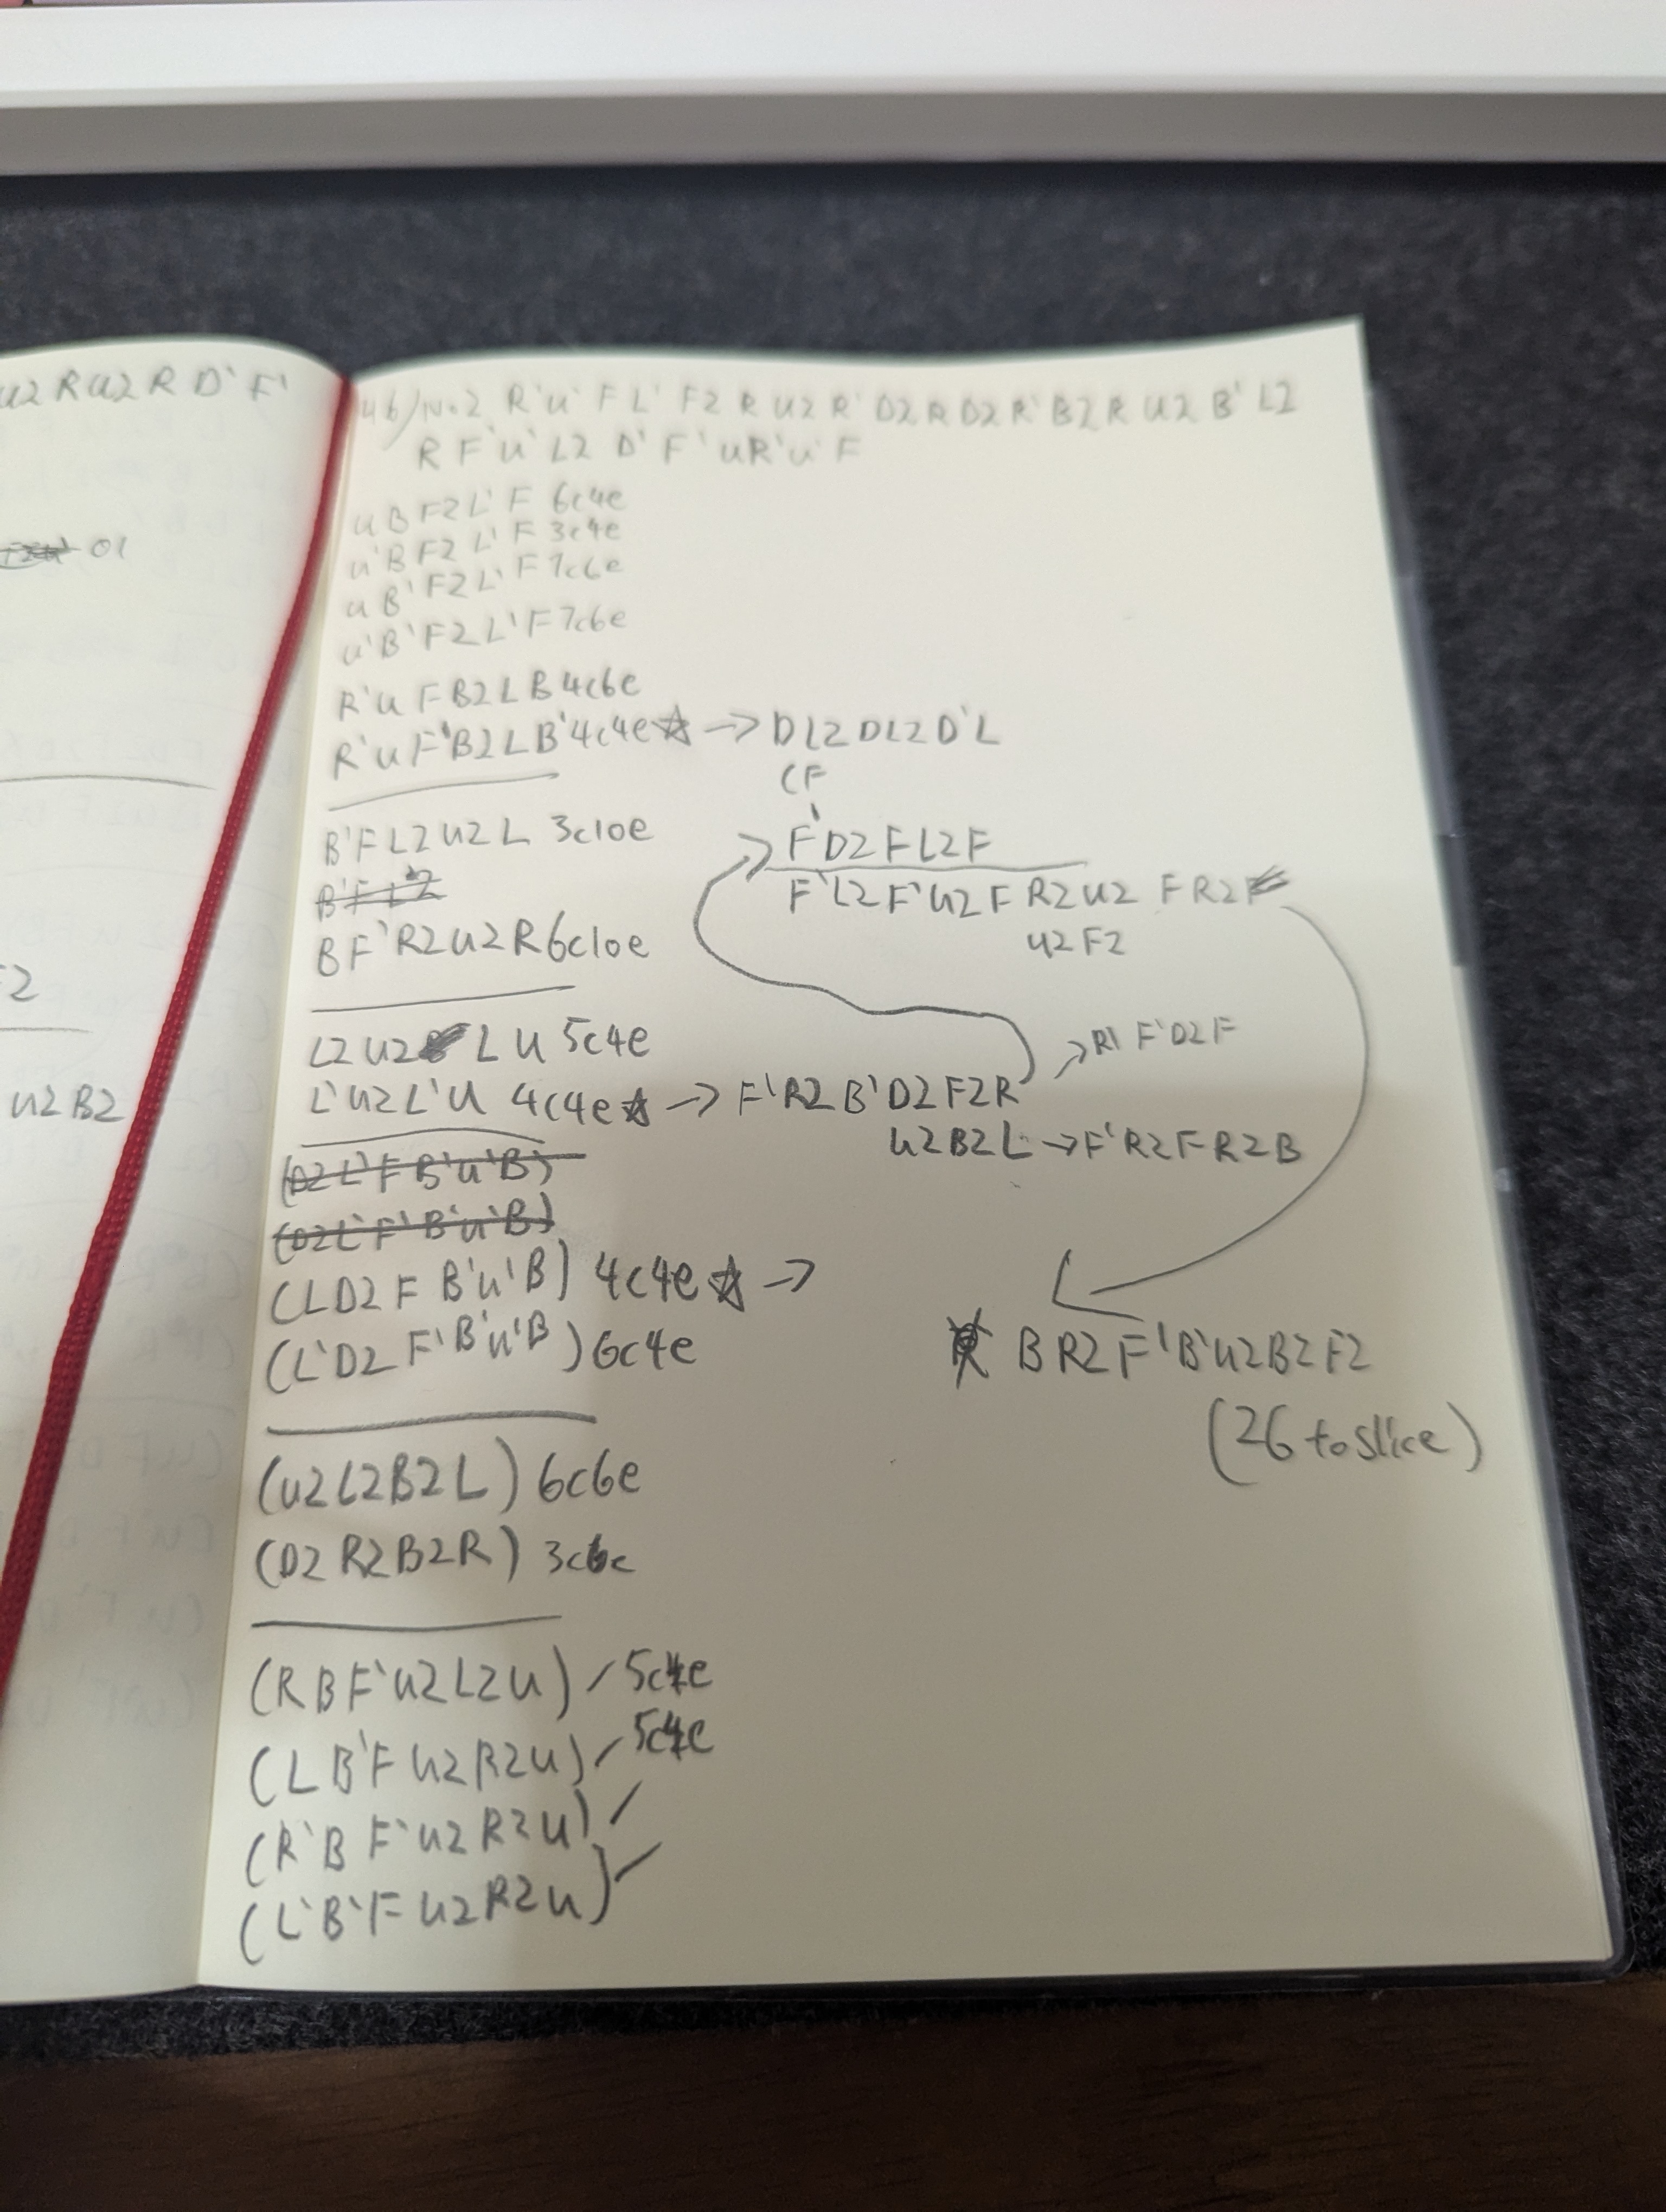 U2 R U2 R D' F'
01
F2
U2 B2
46/No.2 R' U' F L' F2 R U2 R' D2 R D2 R' B2 R U2 B' L2
R F' U' L2 D' F' U R' U' F
U B F2 L' F 6c4e
U' B F2 L' F 3c4e
U B' F2 L' F 7c6e
U' B' F2 L' F 7c6e
R' U F B2 L B 4c6e
R' U F' B2 L B' 4c4e ☆ → D L2 D L2 D' L
(F
B' F L2 U2 L 3c10e
F' D2 F L2 F
F' L2 F' U2 F R2 U2 F R2
U2 F2
B F' R2 U2 R 6c10e
L2 U2 L U 5c4e
→ R1 F' D2 F
L' U2 L' U 4c4e ☆ → F' R2 B' D2 F2 R
U2 B2 L → F' R2 F R2 B
(D2 L' F B' U' B)
(D2 L' F' B' U' B)
(L D2 F B' U' B) 4c4e ☆ →
(L' D2 F' B' U' B) 6c4e
B R2 F' B' U2 B2 F2
(26 to slice)
(U2 L2 B2 L) 6c6e
(D2 R2 B2 R) 3c6e
(R B F' U2 L2 U) / 5c4e
(L B' F U2 R2 U) / 5c4e
(R' B F' U2 R2 U) /
(L' B' F U2 R2 U) /